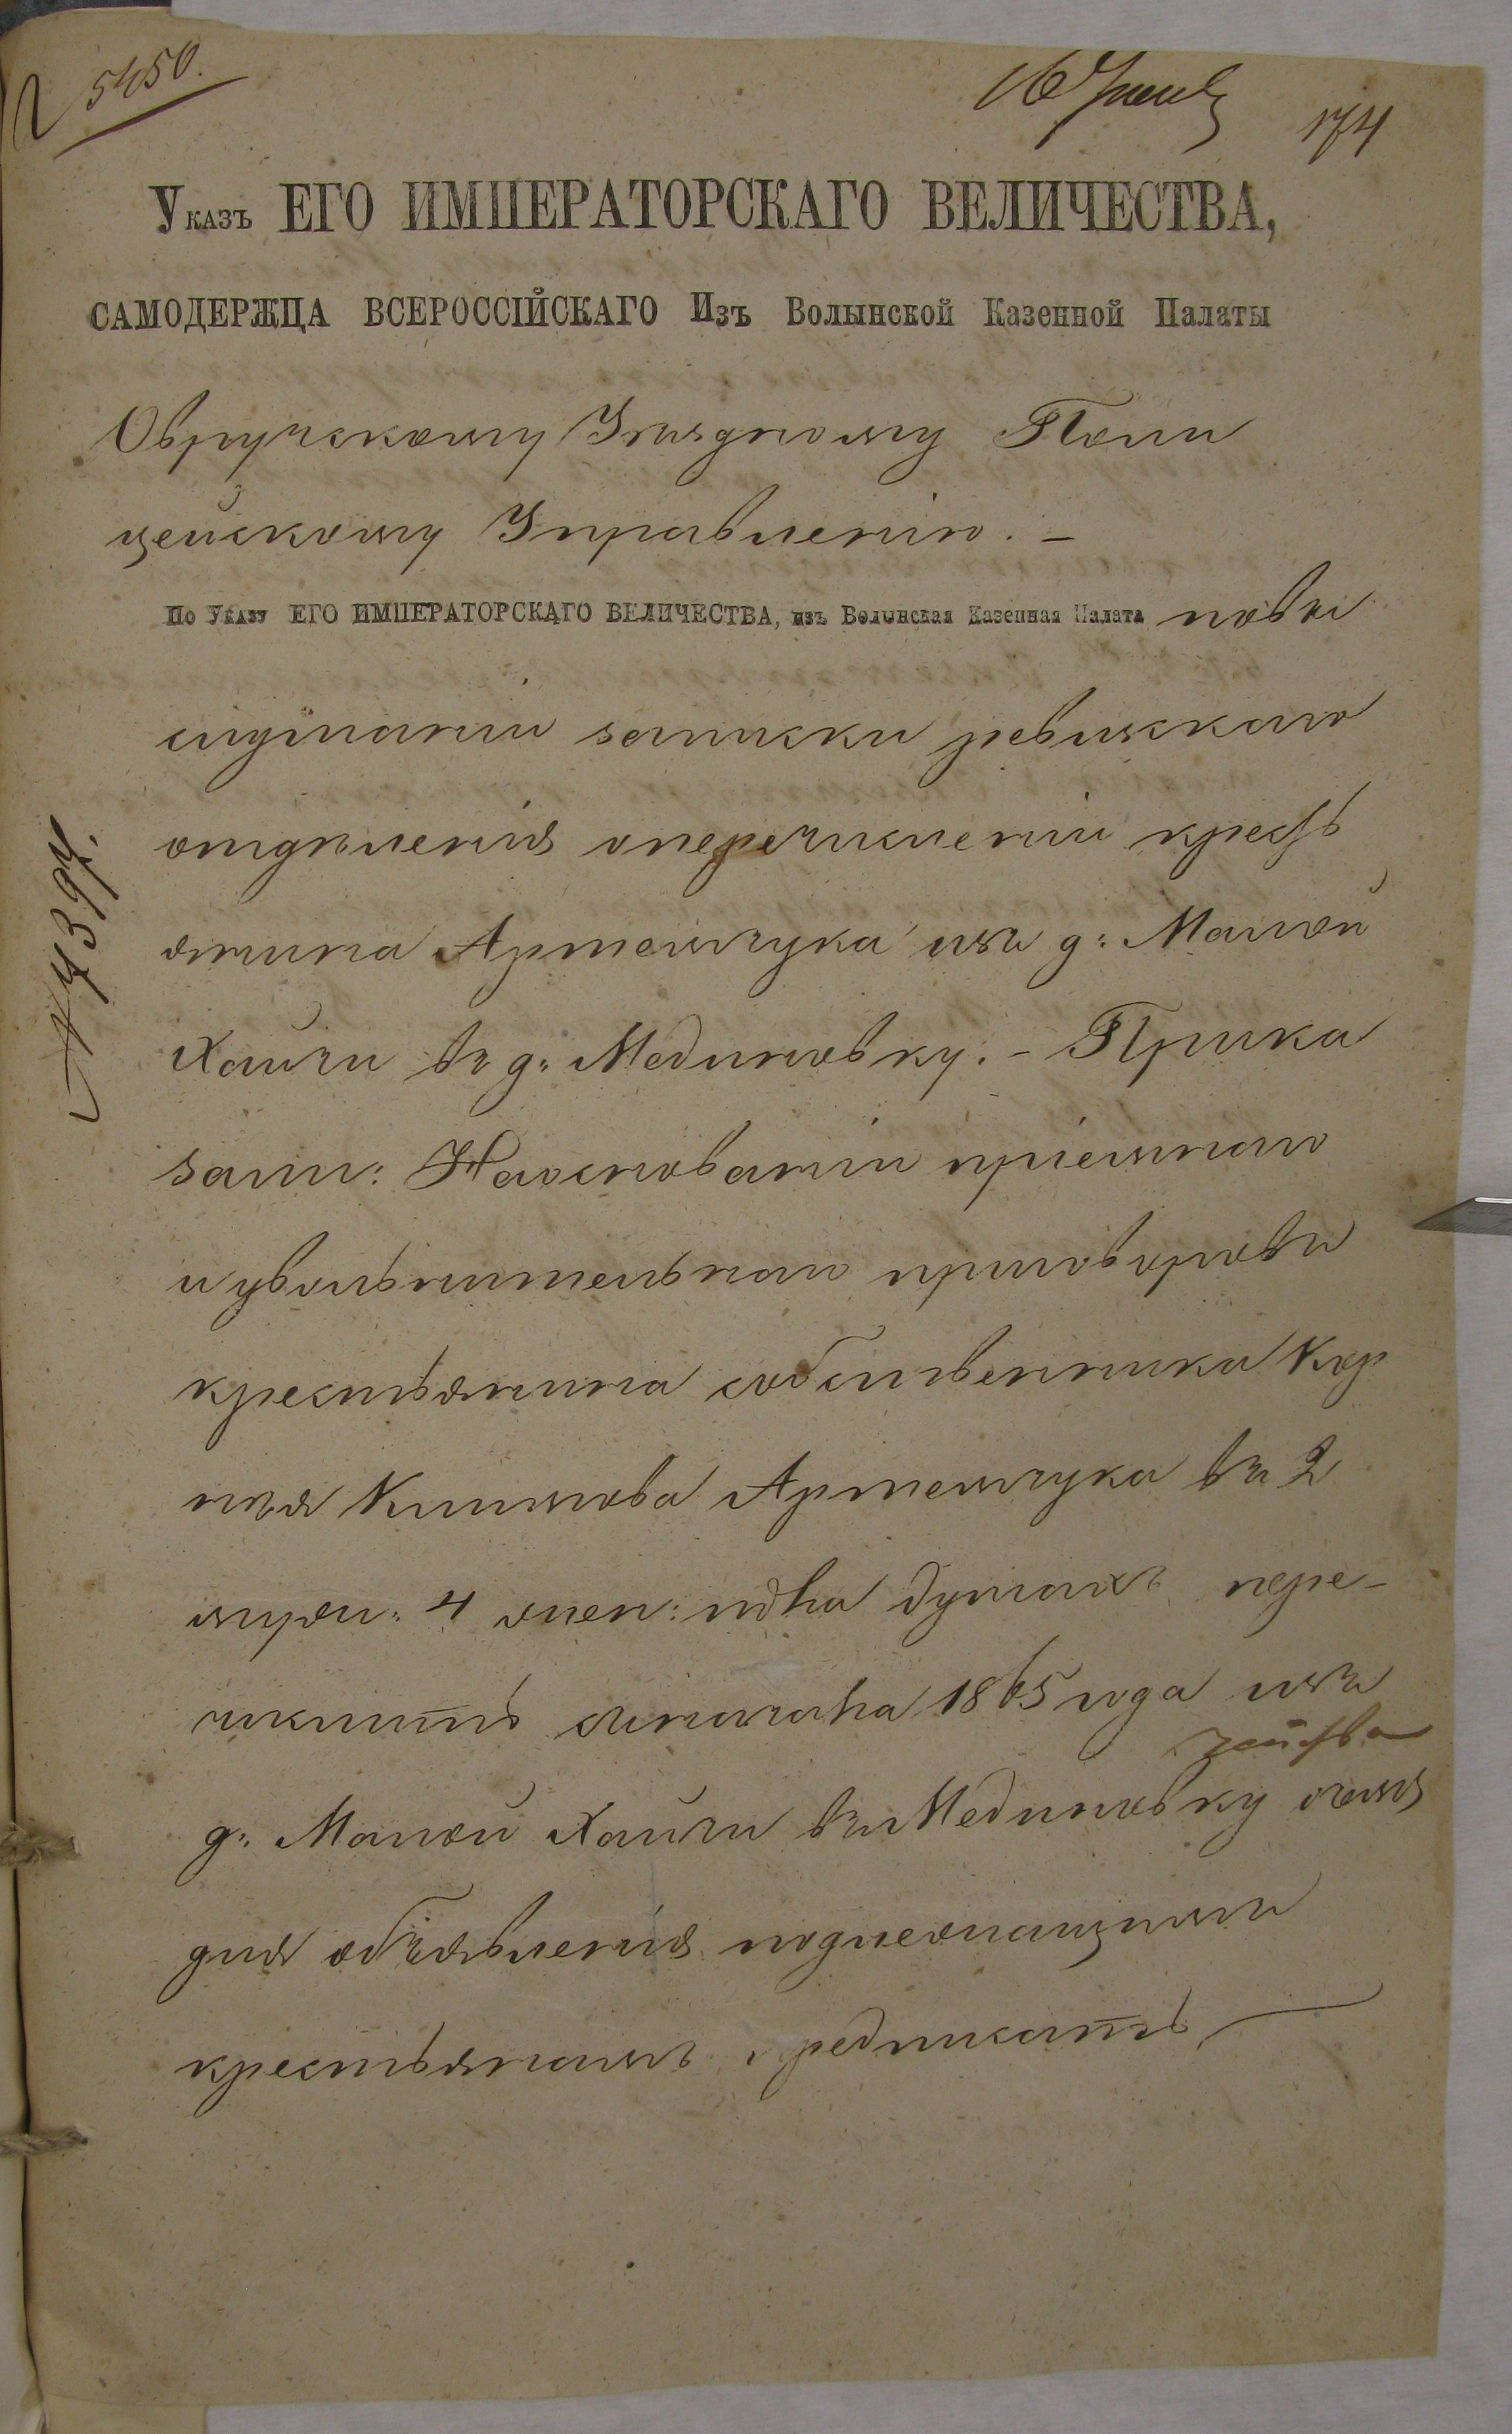 5450.
174
Указъ ЕГО ИМПЕРАТОРСКАГО ВЕЛИЧЕСТВА,
САМОДЕРЖЦА ВСЕРОССІЙСКАГО Изъ Волынской Казенной Палаты
Овручскому Уѣздному Поли
цейскому Управленію. –
По Указу ЕГО ИМПЕРАТОРСКАГО ВЕЛИЧЕСТВА, изъ Волынская Казенная Палата повы
слушаніи записки ревизскаго
отдѣленія оперечисленіи кресть
янина Артемчука изъ д: Малой
Хайчи въ д: Мединовку. – Прика
зали: Наоснованіи пріемнаго
и увольнительнаго приговоровъ
крестьянина собственника Кор
нѣя Климова Артемчука въ 2
муж: 4 жен: пола душахъ пере-
числить сначала 1865 года изъ
д: Малой Хайчи въ Мединовку очемъ
для объявленія подлежащимъ
крестьянамъ предписать